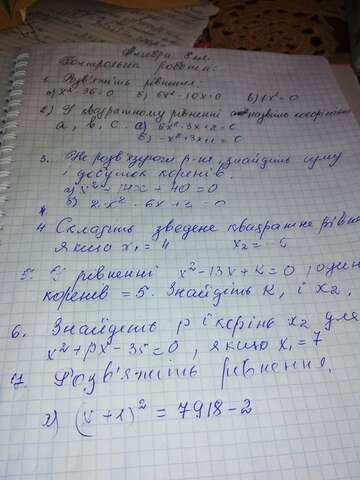 Алгебра 8 кл.
Контрольна робота.
1. Розв'яжіть рівняння.
а) x² - 36 = 0 б) 5x² - 10x = 0 в) x² = 0
2) У квадратному рівнянні
а, в, с а) 5x² - 3x + 2 = 0
б) -x² + 3x + 1 = 0
3. Не розв'язуючи р-ня, знайдіть суму
і добуток коренів.
а) x² - 14x + 40 = 0
б) 2x² - 6x + 2 = 0
4 Складіть зведене квадратне рівн
якщо x₁ = 4 x₂ =
5. В рівнянні x² - 13x + k = 0 один
коренів = 5. Знайдіть k, і x₂,
6. Знайдіть p і корінь x₂ для
x² + px - 35 = 0, якщо x₁ = 7
7. Розв'яжіть рівняння.
(x + 1)² = 7918 - 2